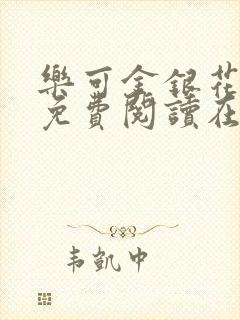 樂可金銀花
免費閱讀在
韦凱中